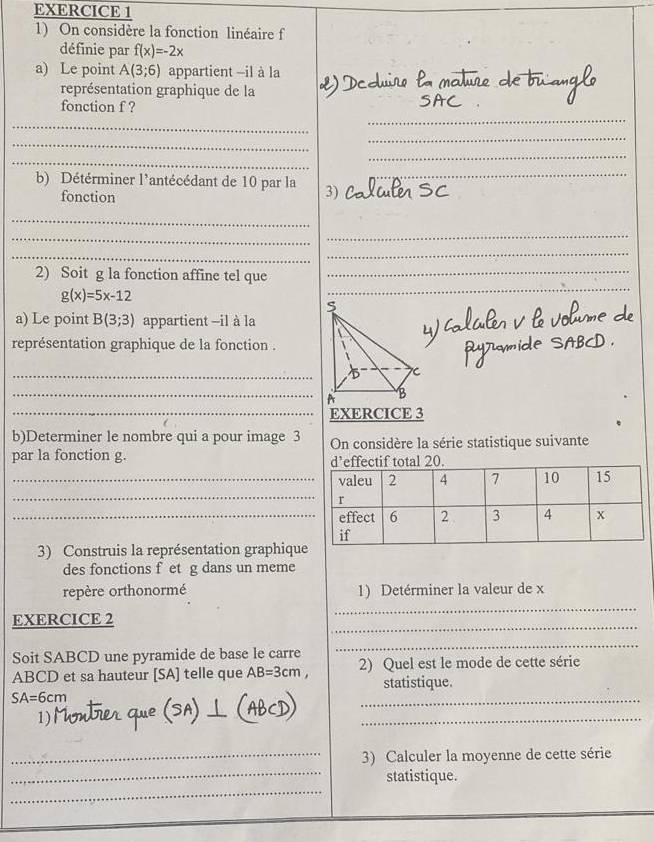 EXERCICE 1
1) On considère la fonction linéaire f
définie par f(x)=-2x
a) Le point A(3;6) appartient –il à la
représentation graphique de la
fonction f ?
b) Détérminer l’antécédant de 10 par la
fonction
2) Soit g la fonction affine tel que
g(x)=5x-12
a) Le point B(3;3) appartient –il à la
représentation graphique de la fonction .
b)Determiner le nombre qui a pour image 3
par la fonction g.
3) Construis la représentation graphique
des fonctions f et g dans un meme
repère orthonormé
EXERCICE 2
Soit SABCD une pyramide de base le carre
ABCD et sa hauteur [SA] telle que AB=3cm ,
SA=6cm
1) Montrer que (SA) ⊥ (ABCD)
2) Deduire la nature de triangle
SAC .
3) Calculer SC
S
D
C
A
B
4) Calculer V le volume de
pyramide SABCD .
EXERCICE 3
On considère la série statistique suivante
d’effectif total 20.
valeu 2 4 7 10 15
r
effect 6 2 3 4 x
if
1) Detérminer la valeur de x
2) Quel est le mode de cette série
statistique.
3) Calculer la moyenne de cette série
statistique.